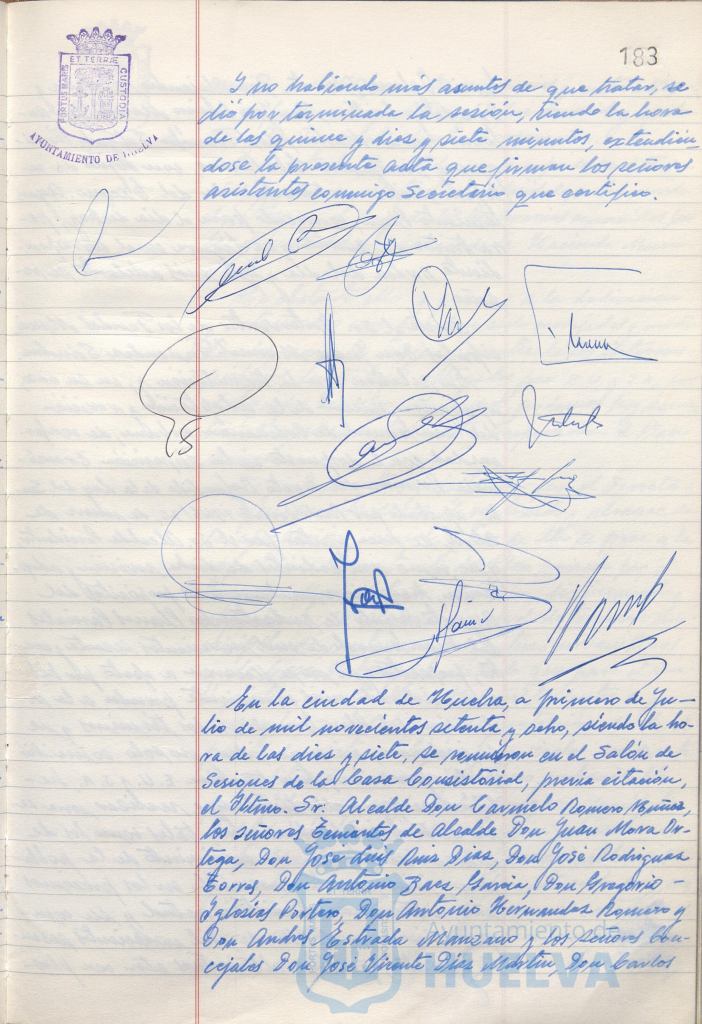 183
ET TERRÆ
PORTUS MARIS
CUSTODIA
AYUNTAMIENTO DE HUELVA
Y no habiendo más asuntos de que tratar, se
dió por terminada la sesión, siendo la hora
de las quince y diez y siete minutos, extendién
dose la presente acta que firman los señores
asistentes conmigo Secretario que certifico.
En la ciudad de Huelva, a primero de Ju-
lio de mil novecientos setenta y ocho, siendo la ho-
ra de las diez y siete, se reunieron en el Salón de
Sesiones de la Casa Consistorial, previa citación,
el Iltmo. Sr. Alcalde Don Carmelo Romero Núñez,
los señores Tenientes de Alcalde Don Juan Mora Or-
tega, Don José Luis Ruiz Díaz, Don José Rodríguez
Torres, Don Antonio Baez García, Don Gregorio -
Iglesias Portero, Don Antonio Hernandez Romero y
Don Andrés Estrada Manzano y los señores Con-
cejales Don José Vicente Díez Martín, Don Carlos
Ayuntamiento de
HUELVA